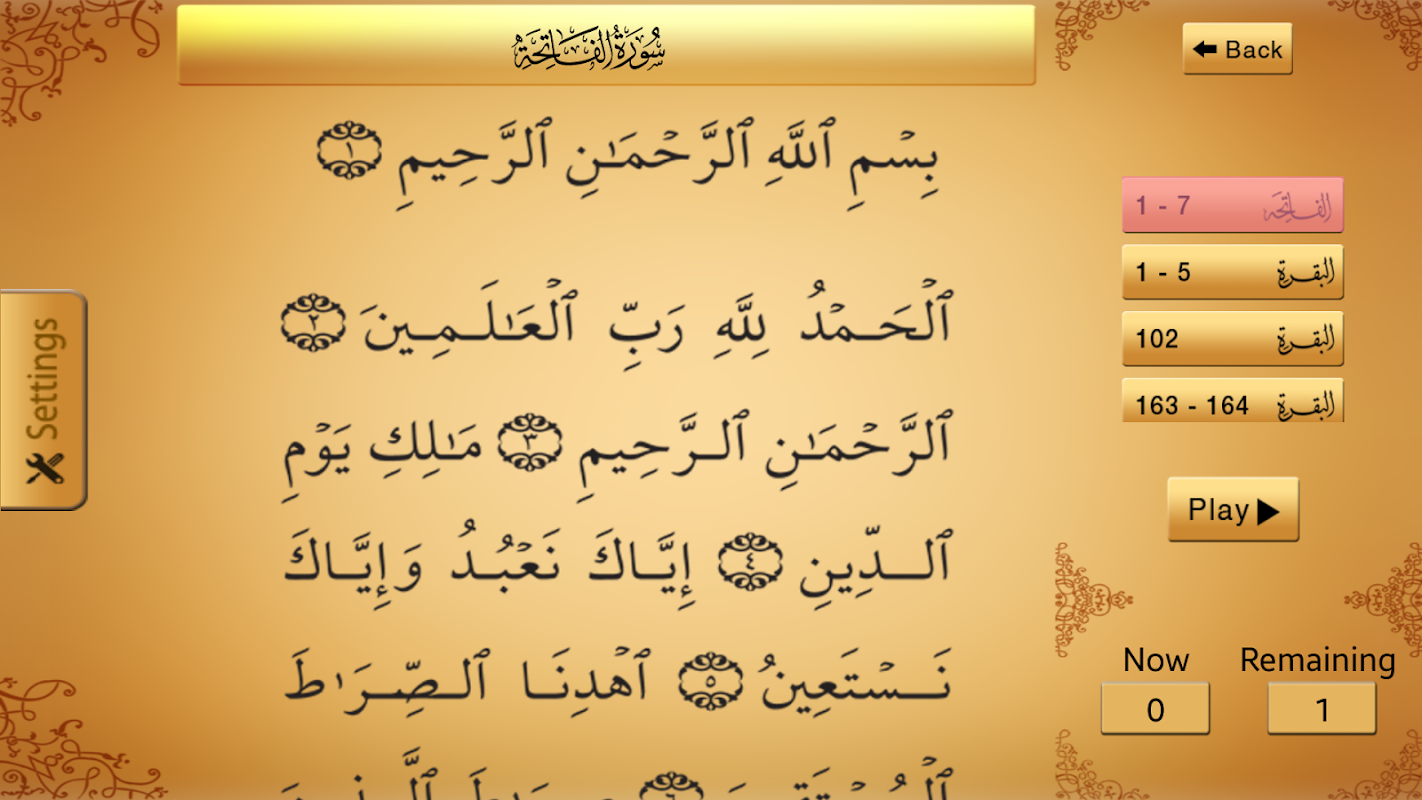 سُورَةُ الفَاتِحَةِ
Back
بِسْمِ ٱللَّهِ ٱلرَّحْمَٰنِ ٱلرَّحِيمِ ١
ٱلْحَمْدُ لِلَّهِ رَبِّ ٱلْعَٰلَمِينَ ٢
ٱلرَّحْمَٰنِ ٱلرَّحِيمِ ٣ مَٰلِكِ يَوْمِ
ٱلدِّينِ ٤ إِيَّاكَ نَعْبُدُ وَإِيَّاكَ
نَسْتَعِينُ ٥ ٱهْدِنَا ٱلصِّرَٰطَ
Settings
1 - 7 الفاتحة
1 - 5 البقرة
102 البقرة
163 - 164 البقرة
Play
Now Remaining
0 1